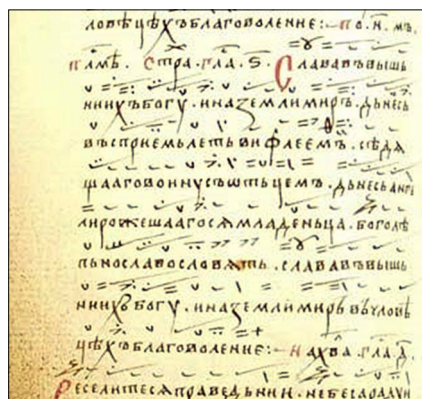 ловѣцѣхъ благоволение:– По .н҃. мъ.
п лмѣ. Стра. гла. ѕ҃. Слава въ вышь
ниихъ богу. и на земли миръ. дьнесь
въсприемьлеть вифлеемъ. сѣдѧ
щааго воину съ ѡтьцемъ. дьнесь анге
ли рожешаагосѧ младеньца. боголѣ
пьно славословѧть. слава въ вышь
ниихъ богу. и на земли миръ въ чловѣ
цѣхъ благоволение:– На хва. гла. д҃.
Веселитесѧ праведьнии. небеса радуи